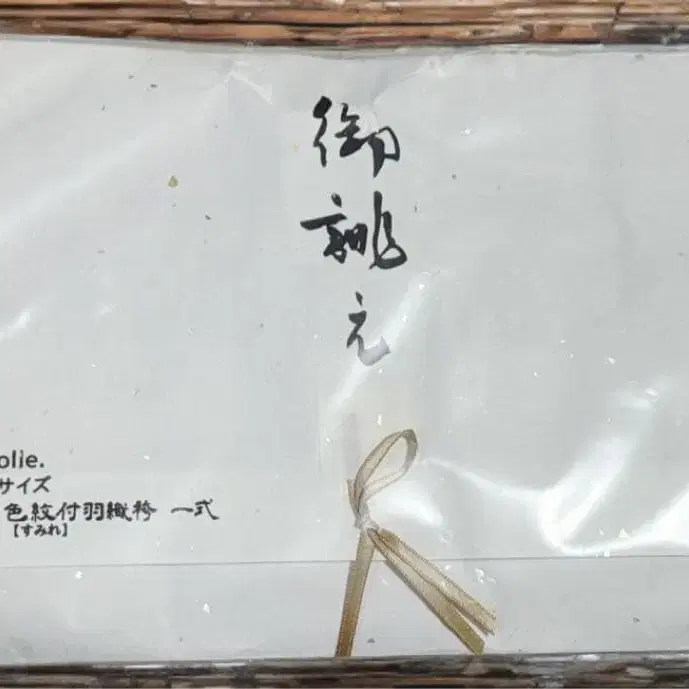 御誂え
olie.
サイズ
色紋付羽織袴 一式
【すみれ】